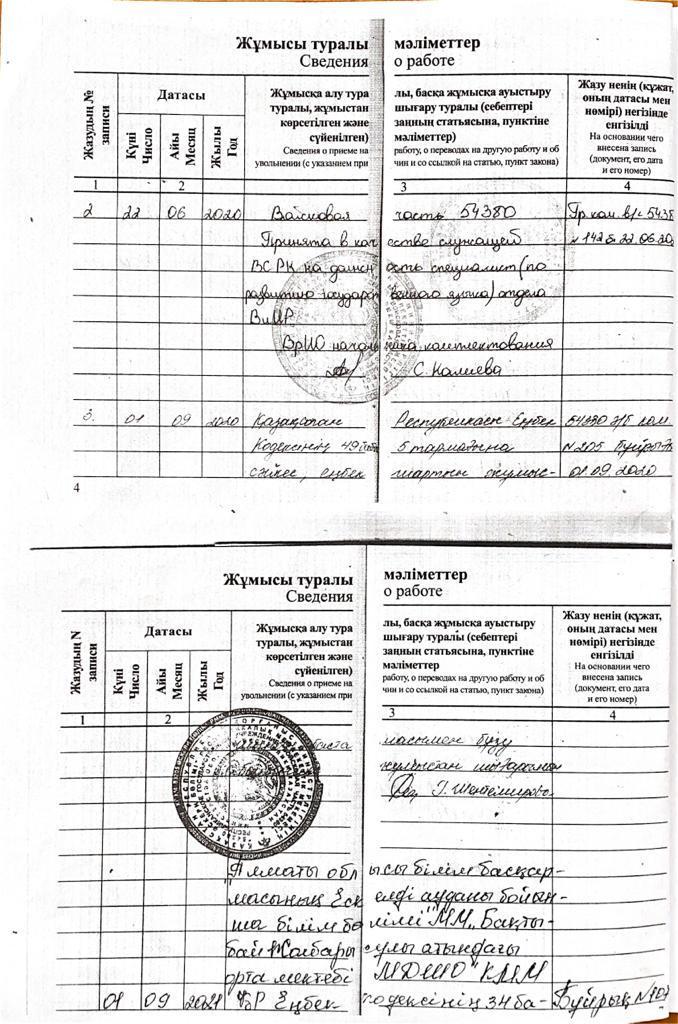 Жұмысы туралы мәліметтер
Сведения о работе
Жазудың № записи
Датасы
Күні Число
Айы Месяц
Жылы Год
Жұмысқа алу тура лы, басқа жұмысқа ауыстыру
туралы, жұмыстан шығару туралы (себептері
көрсетілген және заңның статьясына, пунктіне
сүйенілген) мәліметтер)
Сведения о приеме на работу, о переводах на другую работу и об
увольнении (с указанием при чин и со ссылкой на статью, пункт закона)
Жазу ненің (құжат,
оның датасы мен
нөмірі) негізінде
енгізілді
На основании чего
внесена запись
(документ, его дата
и его номер)
1 2 3 4
2 22 06 2020 Войсковая часть 54380 Пр.ком.в/ч 5438
Принята в кач естве служащей №142 22.06.20
ВС РК на должн ость специалист (по
развитию государст венного языка) отдела
ВиИР
ВрИО началь ника комплектования
С.Калиева
3. 01 09 2020 Қазақстан Республикасы Еңбек 54380 ком
Кодексінің 49 5 тармағына №205
сәйкес, еңбек шартын 01.09.2020
4
Жұмысы туралы мәліметтер
Сведения о работе
Жазудың N записи
Датасы
Күні Число
Айы Месяц
Жылы Год
Жұмысқа алу тура лы, басқа жұмысқа ауыстыру
туралы, жұмыстан шығару туралы (себептері
көрсетілген және заңның статьясына, пунктіне
сүйенілген) мәліметтер
Сведения о приеме на работу, о переводах на другую работу и об
увольнении (с указанием при чин и со ссылкой на статью, пункт закона)
Жазу ненің (құжат,
оның датасы мен
нөмірі) негізінде
енгізілді
На основании чего
внесена запись
(документ, его дата
и его номер)
1 2 3 4
бұзу
жұмыстан шығарылған
Алматы обл ысы білім басқар-
масының Еск елді ауданы бойын-
ша білім бө лімі" ММ „Бақты-
бай Жолбарыс ұлы атындағы
орта мектебі МДШО" КММ
01 09 2021 ҚР Еңбек кодексінің 34 ба- Бұйрық №107